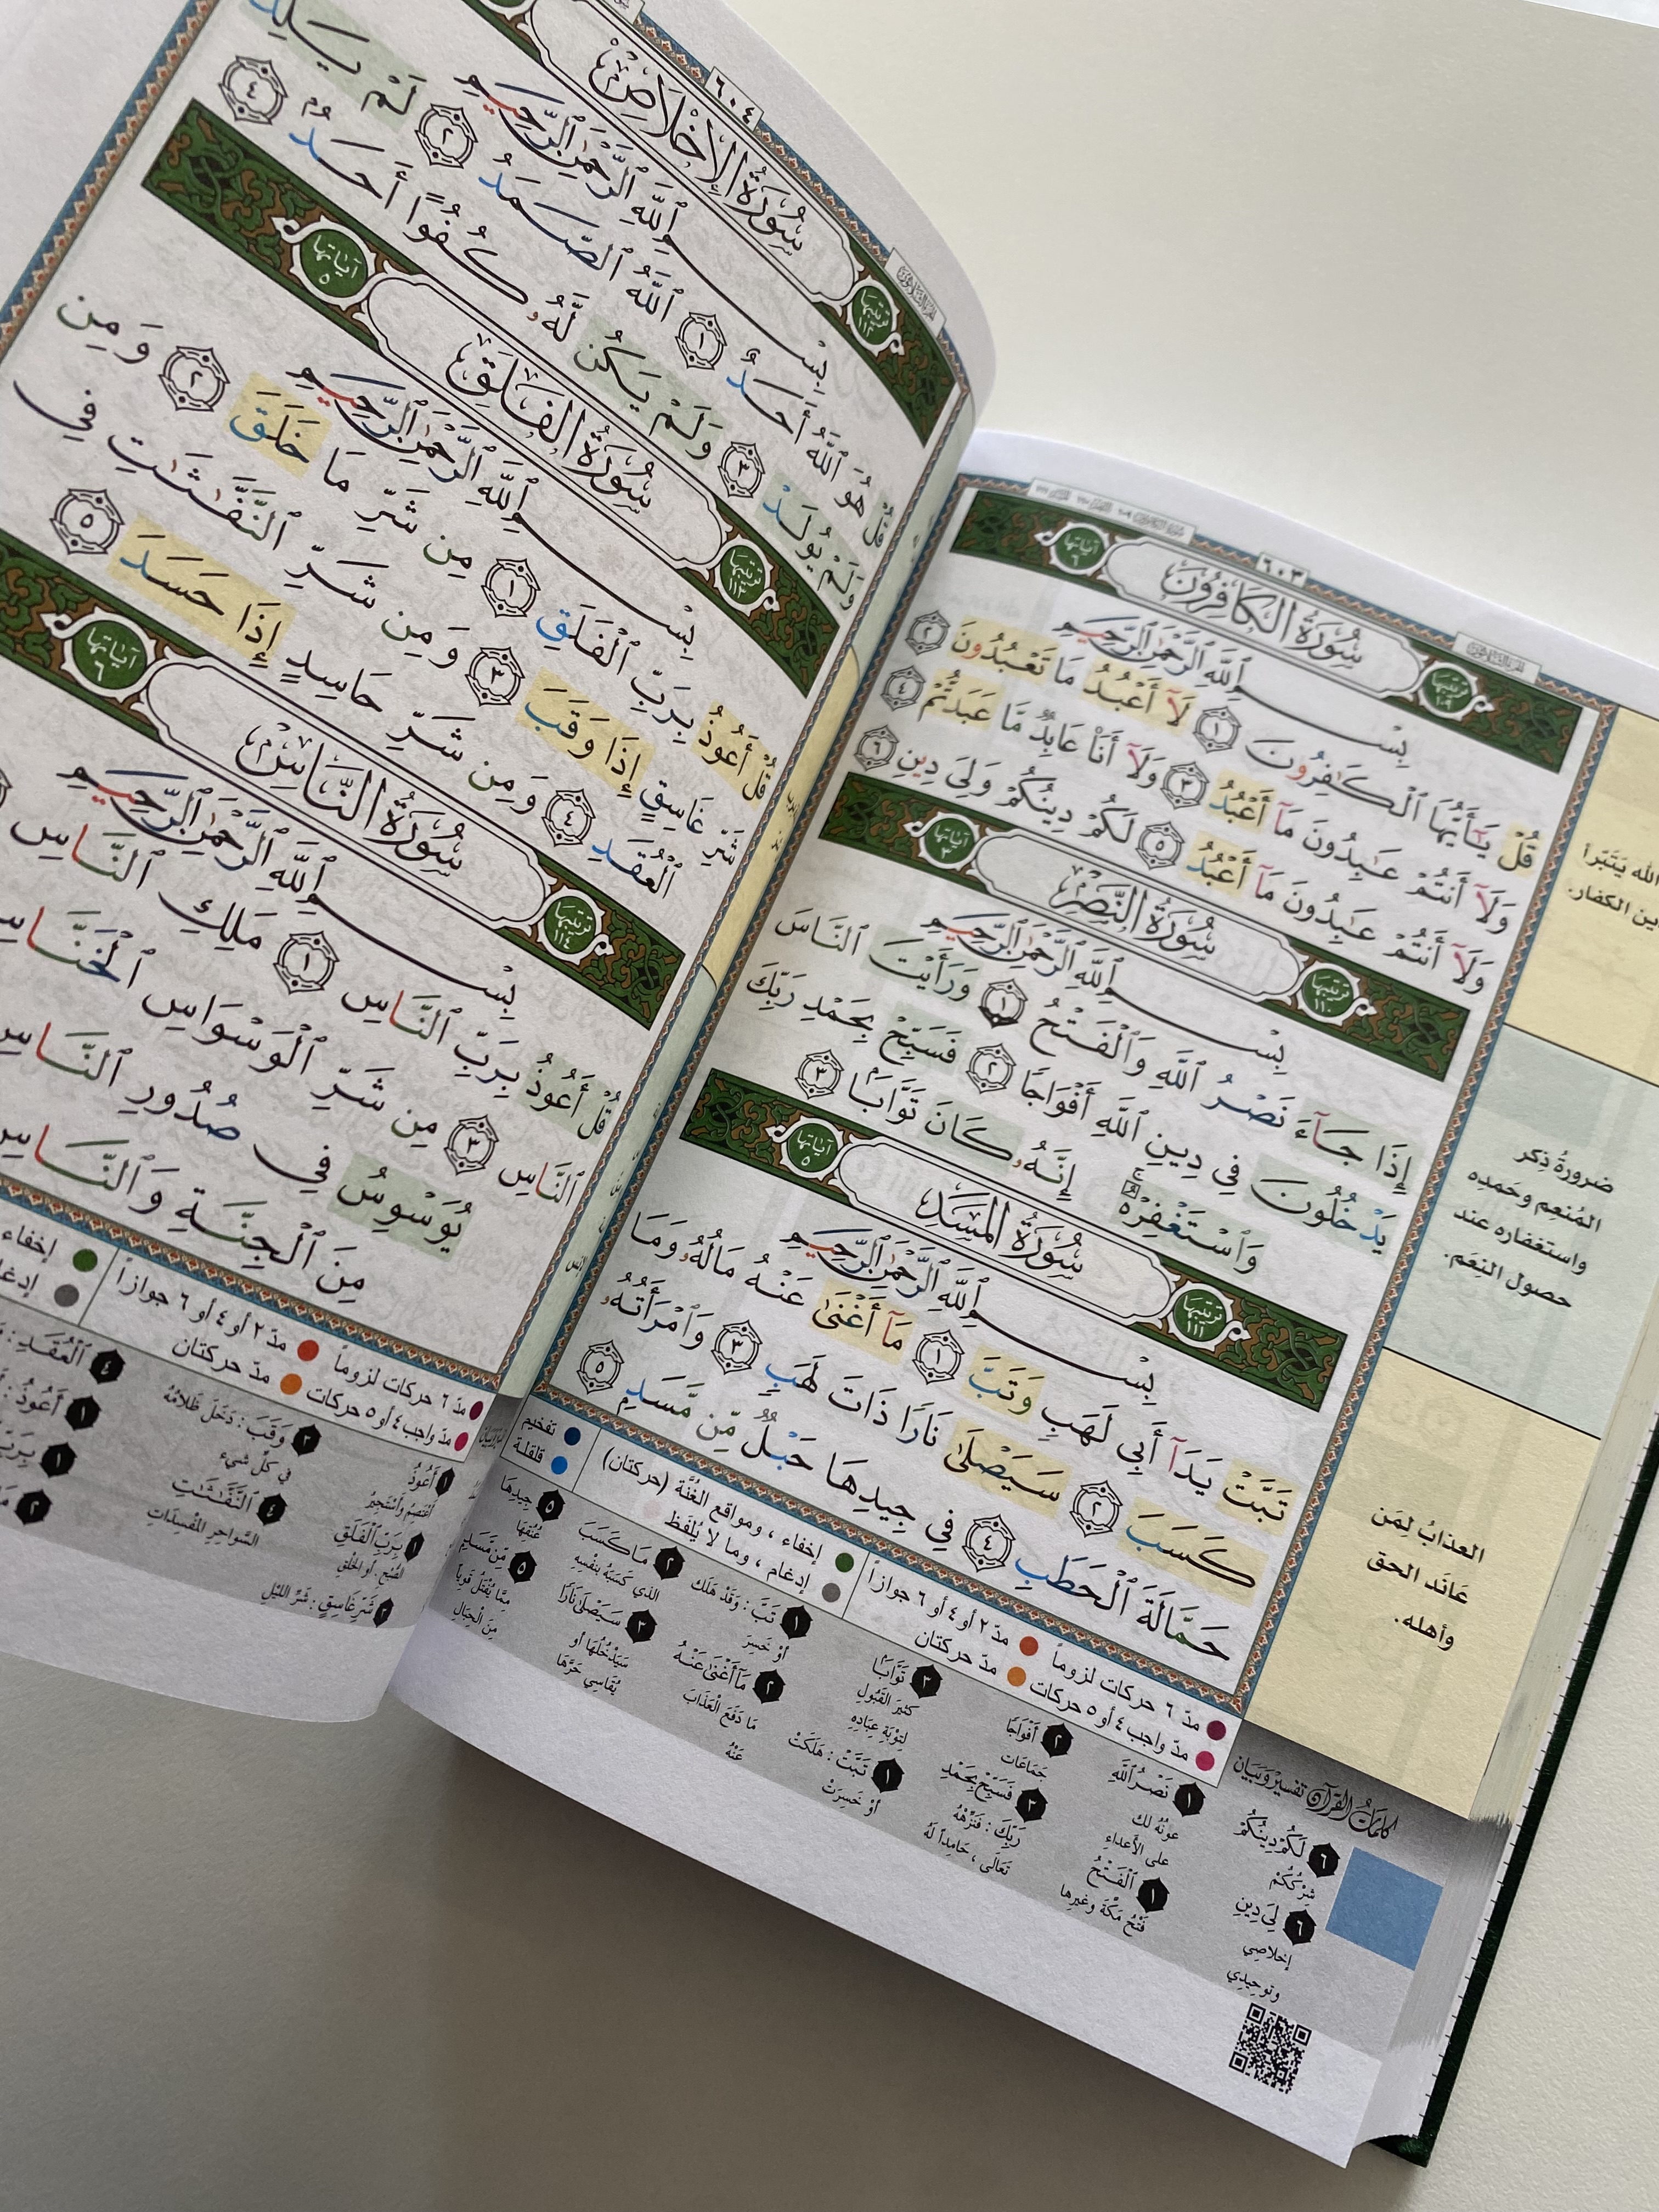 ٦٠٣
ترتيبها ١٠٩ سُورَةُ الكَافِرُونَ آياتها ٦
بِسْمِ ٱللَّهِ ٱلرَّحْمَٰنِ ٱلرَّحِيمِ
قُلْ يَٰٓأَيُّهَا ٱلْكَٰفِرُونَ ١ لَآ أَعْبُدُ مَا تَعْبُدُونَ ٢
وَلَآ أَنتُمْ عَٰبِدُونَ مَآ أَعْبُدُ ٣ وَلَآ أَنَا۠ عَابِدٌ مَّا عَبَدتُّمْ ٤
وَلَآ أَنتُمْ عَٰبِدُونَ مَآ أَعْبُدُ ٥ لَكُمْ دِينُكُمْ وَلِىَ دِينِ ٦
ترتيبها ١١٠ سُورَةُ النَّصْرِ آياتها ٣
بِسْمِ ٱللَّهِ ٱلرَّحْمَٰنِ ٱلرَّحِيمِ
إِذَا جَآءَ نَصْرُ ٱللَّهِ وَٱلْفَتْحُ ١ وَرَأَيْتَ ٱلنَّاسَ
يَدْخُلُونَ فِى دِينِ ٱللَّهِ أَفْوَاجًا ٢ فَسَبِّحْ بِحَمْدِ رَبِّكَ
وَٱسْتَغْفِرْهُ ۚ إِنَّهُۥ كَانَ تَوَّابًۢا ٣
ترتيبها ١١١ سُورَةُ المَسَدِ آياتها ٥
بِسْمِ ٱللَّهِ ٱلرَّحْمَٰنِ ٱلرَّحِيمِ
تَبَّتْ يَدَآ أَبِى لَهَبٍ وَتَبَّ ١ مَآ أَغْنَىٰ عَنْهُ مَالُهُۥ وَمَا
كَسَبَ ٢ سَيَصْلَىٰ نَارًا ذَاتَ لَهَبٍ ٣ وَٱمْرَأَتُهُۥ
حَمَّالَةَ ٱلْحَطَبِ ٤ فِى جِيدِهَا حَبْلٌ مِّن مَّسَدٍۭ ٥
الله يَتَبَرّأ
ين الكفار.
ضرورةُ ذِكر
المُنعِم وحَمدِه
واستغفاره عند
حصول النِعَم.
العذابُ لِمَن
عَانَد الحق
وأهله.
مدّ ٦ حركات لزوماً مدّ ٢ أو ٤ أو ٦ جوازاً إخفاء ، ومواقع الغُنَّة (حركتان) تفخيم
مدّ واجب ٤ أو ٥ حركات مدّ حركتان إدغام ، وما لا يُلفَظ قلقلة
كلمات القرآن تفسير وبيان
٦ لَكُمْ دِينُكُمْ
شِرْكُكُمْ
٦ لِيَ دِينِ
إخلاصي
وتوحيدي
١ نَصْرُ اللَّهِ
عونُهُ لك
على الأعداءِ
١ ٱلْفَتْحُ
فَتْحُ مَكَّةَ وغيرِها
٢ أَفْوَاجًا
جَمَاعَات
٣ فَسَبِّحْ بِحَمْدِ
رَبِّكَ : فَنَزِّهْهُ
تَعَالَى ، حَامِداً لَهُ
٣ تَوَّابًا
كثيرَ القَبُولِ
لِتوْبَةِ عِبَادِهِ
١ تَبَّتْ : هَلَكَتْ
أوْ خَسِرَتْ
١ تَبَّ : وَقَدْ هَلَكَ
أوْ خَسِرَ
٢ مَا أَغْنَىٰ عَنْهُ
مَا دَفَعَ الْعَذَابَ
عَنْهُ
٢ مَا كَسَبَ
الذي كَسَبَهُ بِنَفْسِهِ
٣ سَيَصْلَىٰ نَارًا
سَيَدْخُلُهَا أو
يُقَاسِي حَرَّهَا
٥ جِيدِهَا
عُنُقِهَا
٥ مِّن مَّسَدٍ
مِمَّا يُفْتَلُ قَوِيّاً
مِنَ الْحِبَالِ
٦٠٤
ترتيبها ١١٢ سُورَةُ الإِخْلَاصِ
بِسْمِ ٱللَّهِ ٱلرَّحْمَٰنِ ٱلرَّحِيمِ
قُلْ هُوَ ٱللَّهُ أَحَدٌ ١ ٱللَّهُ ٱلصَّمَدُ ٢ لَمْ يَلِدْ
وَلَمْ يُولَدْ ٣ وَلَمْ يَكُن لَّهُۥ كُفُوًا أَحَدٌۢ ٤
ترتيبها ١١٣ سُورَةُ الفَلَقِ آياتها ٥
بِسْمِ ٱللَّهِ ٱلرَّحْمَٰنِ ٱلرَّحِيمِ
قُلْ أَعُوذُ بِرَبِّ ٱلْفَلَقِ ١ مِن شَرِّ مَا خَلَقَ ٢ وَمِن
شَرِّ غَاسِقٍ إِذَا وَقَبَ ٣ وَمِن شَرِّ ٱلنَّفَّٰثَٰتِ فِى
ٱلْعُقَدِ ٤ وَمِن شَرِّ حَاسِدٍ إِذَا حَسَدَ ٥
ترتيبها ١١٤ سُورَةُ النَّاسِ آياتها ٦
بِسْمِ ٱللَّهِ ٱلرَّحْمَٰنِ ٱلرَّحِيمِ
قُلْ أَعُوذُ بِرَبِّ ٱلنَّاسِ ١ مَلِكِ ٱلنَّاسِ
ٱلنَّاسِ ٣ مِن شَرِّ ٱلْوَسْوَاسِ ٱلْخَنَّاسِ
يُوَسْوِسُ فِى صُدُورِ ٱلنَّاسِ
مِنَ ٱلْجِنَّةِ وَٱلنَّاسِ
مدّ ٦ حركات لزوماً مدّ ٢ أو ٤ أو ٦ جوازاً إخفاء
مدّ واجب ٤ أو ٥ حركات مدّ حركتان
١ أَعُوذُ
أعْتَصِمُ وَأسْتَجِيرُ
١ بِرَبِّ ٱلْفَلَقِ
الصُّبْحِ . أو الخَلْقِ
٣ شَرِّ غَاسِقٍ : شَرِّ اللَّيْلِ
٣ وَقَبَ : دَخَلَ ظَلَامُهُ
في كلِّ شيء
٤ النَّفَّٰثَٰتِ
السَّوَاحِرِ المُفْسِدَاتِ
٤ الْعُقَدِ :
١ أَعُوذُ :